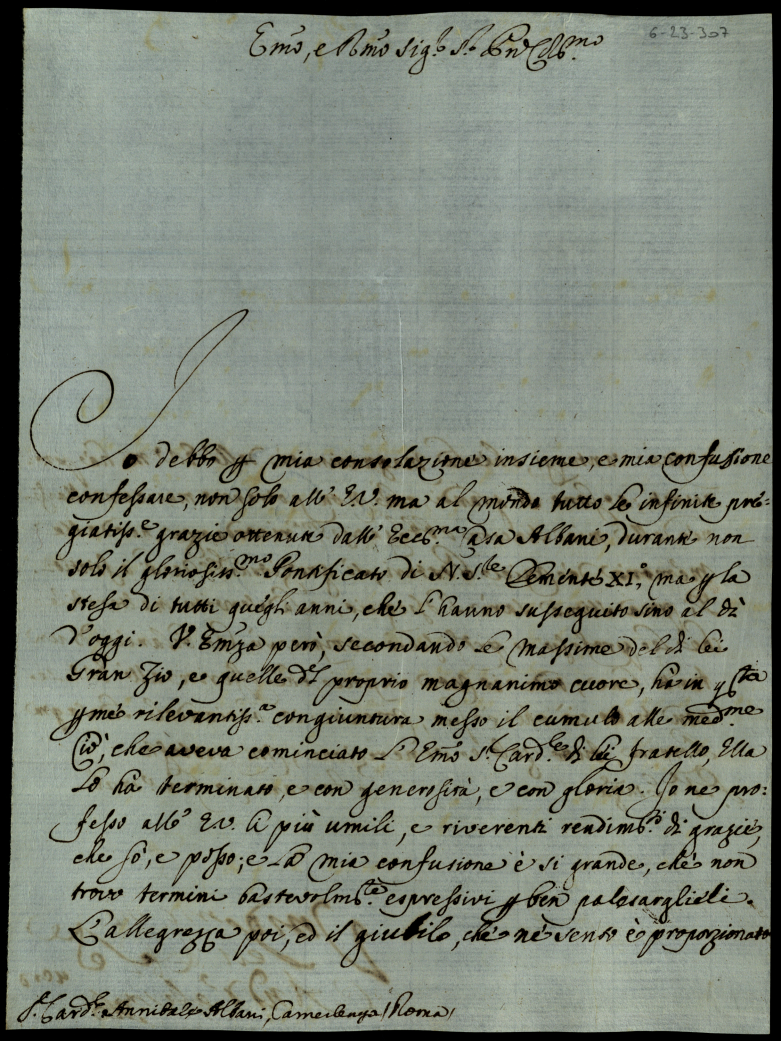 6-23-307
Emo, e Rmo Sig.r S.r Pne Col.mo
Io debbo p mia consolazione insieme, e mia confusione
confessare, non solo all' E.V. ma al mondo tutto le infinite pre=
giatiss.e grazie ottenute dall' Ecc.ma Casa Albani, durante non
solo il gloriosiss.mo Pontificato di N.S.re Clemente XI.o, ma p la
stessa di tutti quegli anni, che l'hanno susseguito sino al dì
d'oggi. V. Emza però, secondando le massime del di lei
Gran Zio, e quelle dl proprio magnanimo cuore, ha in q.sta
p me rilevantiss.a congiuntura messo il cumulo alle med.me
Ciò, che aveva cominciato l'Emo S.r Card.le di lei fratello, Ella
lo ha terminato, e con generosità, e con gloria. Io ne pro=
fesso all' E.V. li più umili, e riverenti rendim.ti di grazie,
che sò, e posso; e la mia confusione è si grande, che non
trovo termini bastevolm.te espressivi p ben palesarglieli.
L'allegrezza poi, ed il giubilo, che ne sento è proporzionato
S.r Card.le Annibale Albani, Camerlengo (Roma)